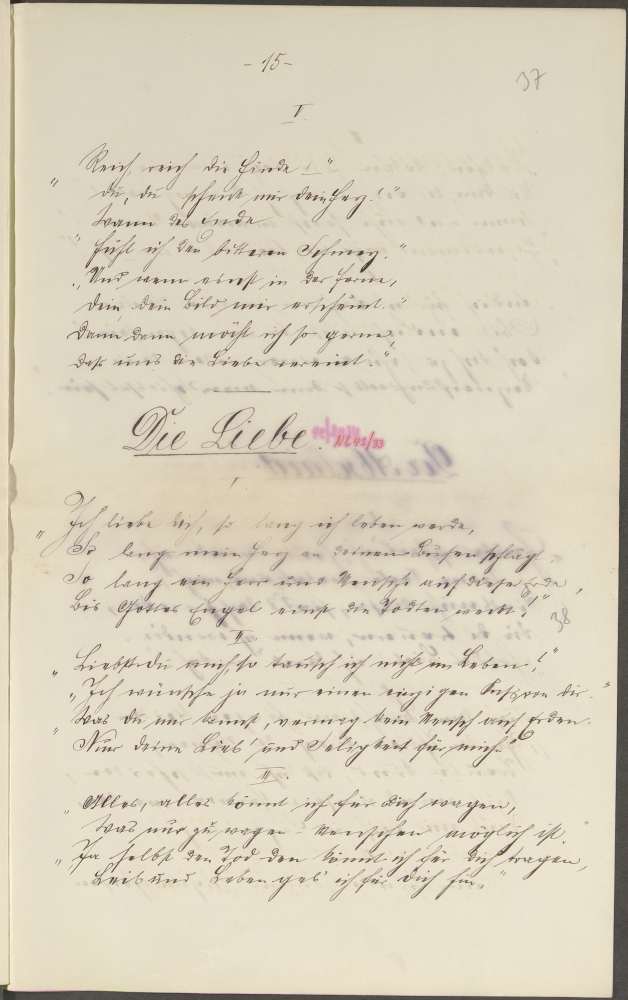 - 15 -
37
V.
„Reich, reich die Hände!"
Du, du schenk mir dein Herz!"
Wann das Ende
„Fühl ich den bitteren Schmerz."
„Und wenn einst in der Ferne,
Dein, dein Bild mir erscheint."
Dann dann möcht ich so gerne,
Daß uns die Liebe vereint."
Die Liebe.
N L 42/33
I
„Ich liebe dich, so lang ich leben werde,
So lang mein Herz an deinem Busen schlägt.
So lang ein Herr und Mensch auf dieser Erde,
Bis Gottes Engel einst die Todten weckt!"
38
II.
„Liebst du mich, so tausch ich nicht im Leben!"
„Ich wünsche ja nur einen einzigen Kuß von dir."
Was du mir kannst, vermag kein Mensch auf Erden.
„Nur deine Lieb' und Seligkeit für mich."
III.
„Alles, alles könnt ich für dich wagen,
Was nur zu wagen Menschen möglich ist."
„Ja selbst den Tod den könnt ich für dich tragen,
Leib und Leben geb' ich für dich hin."